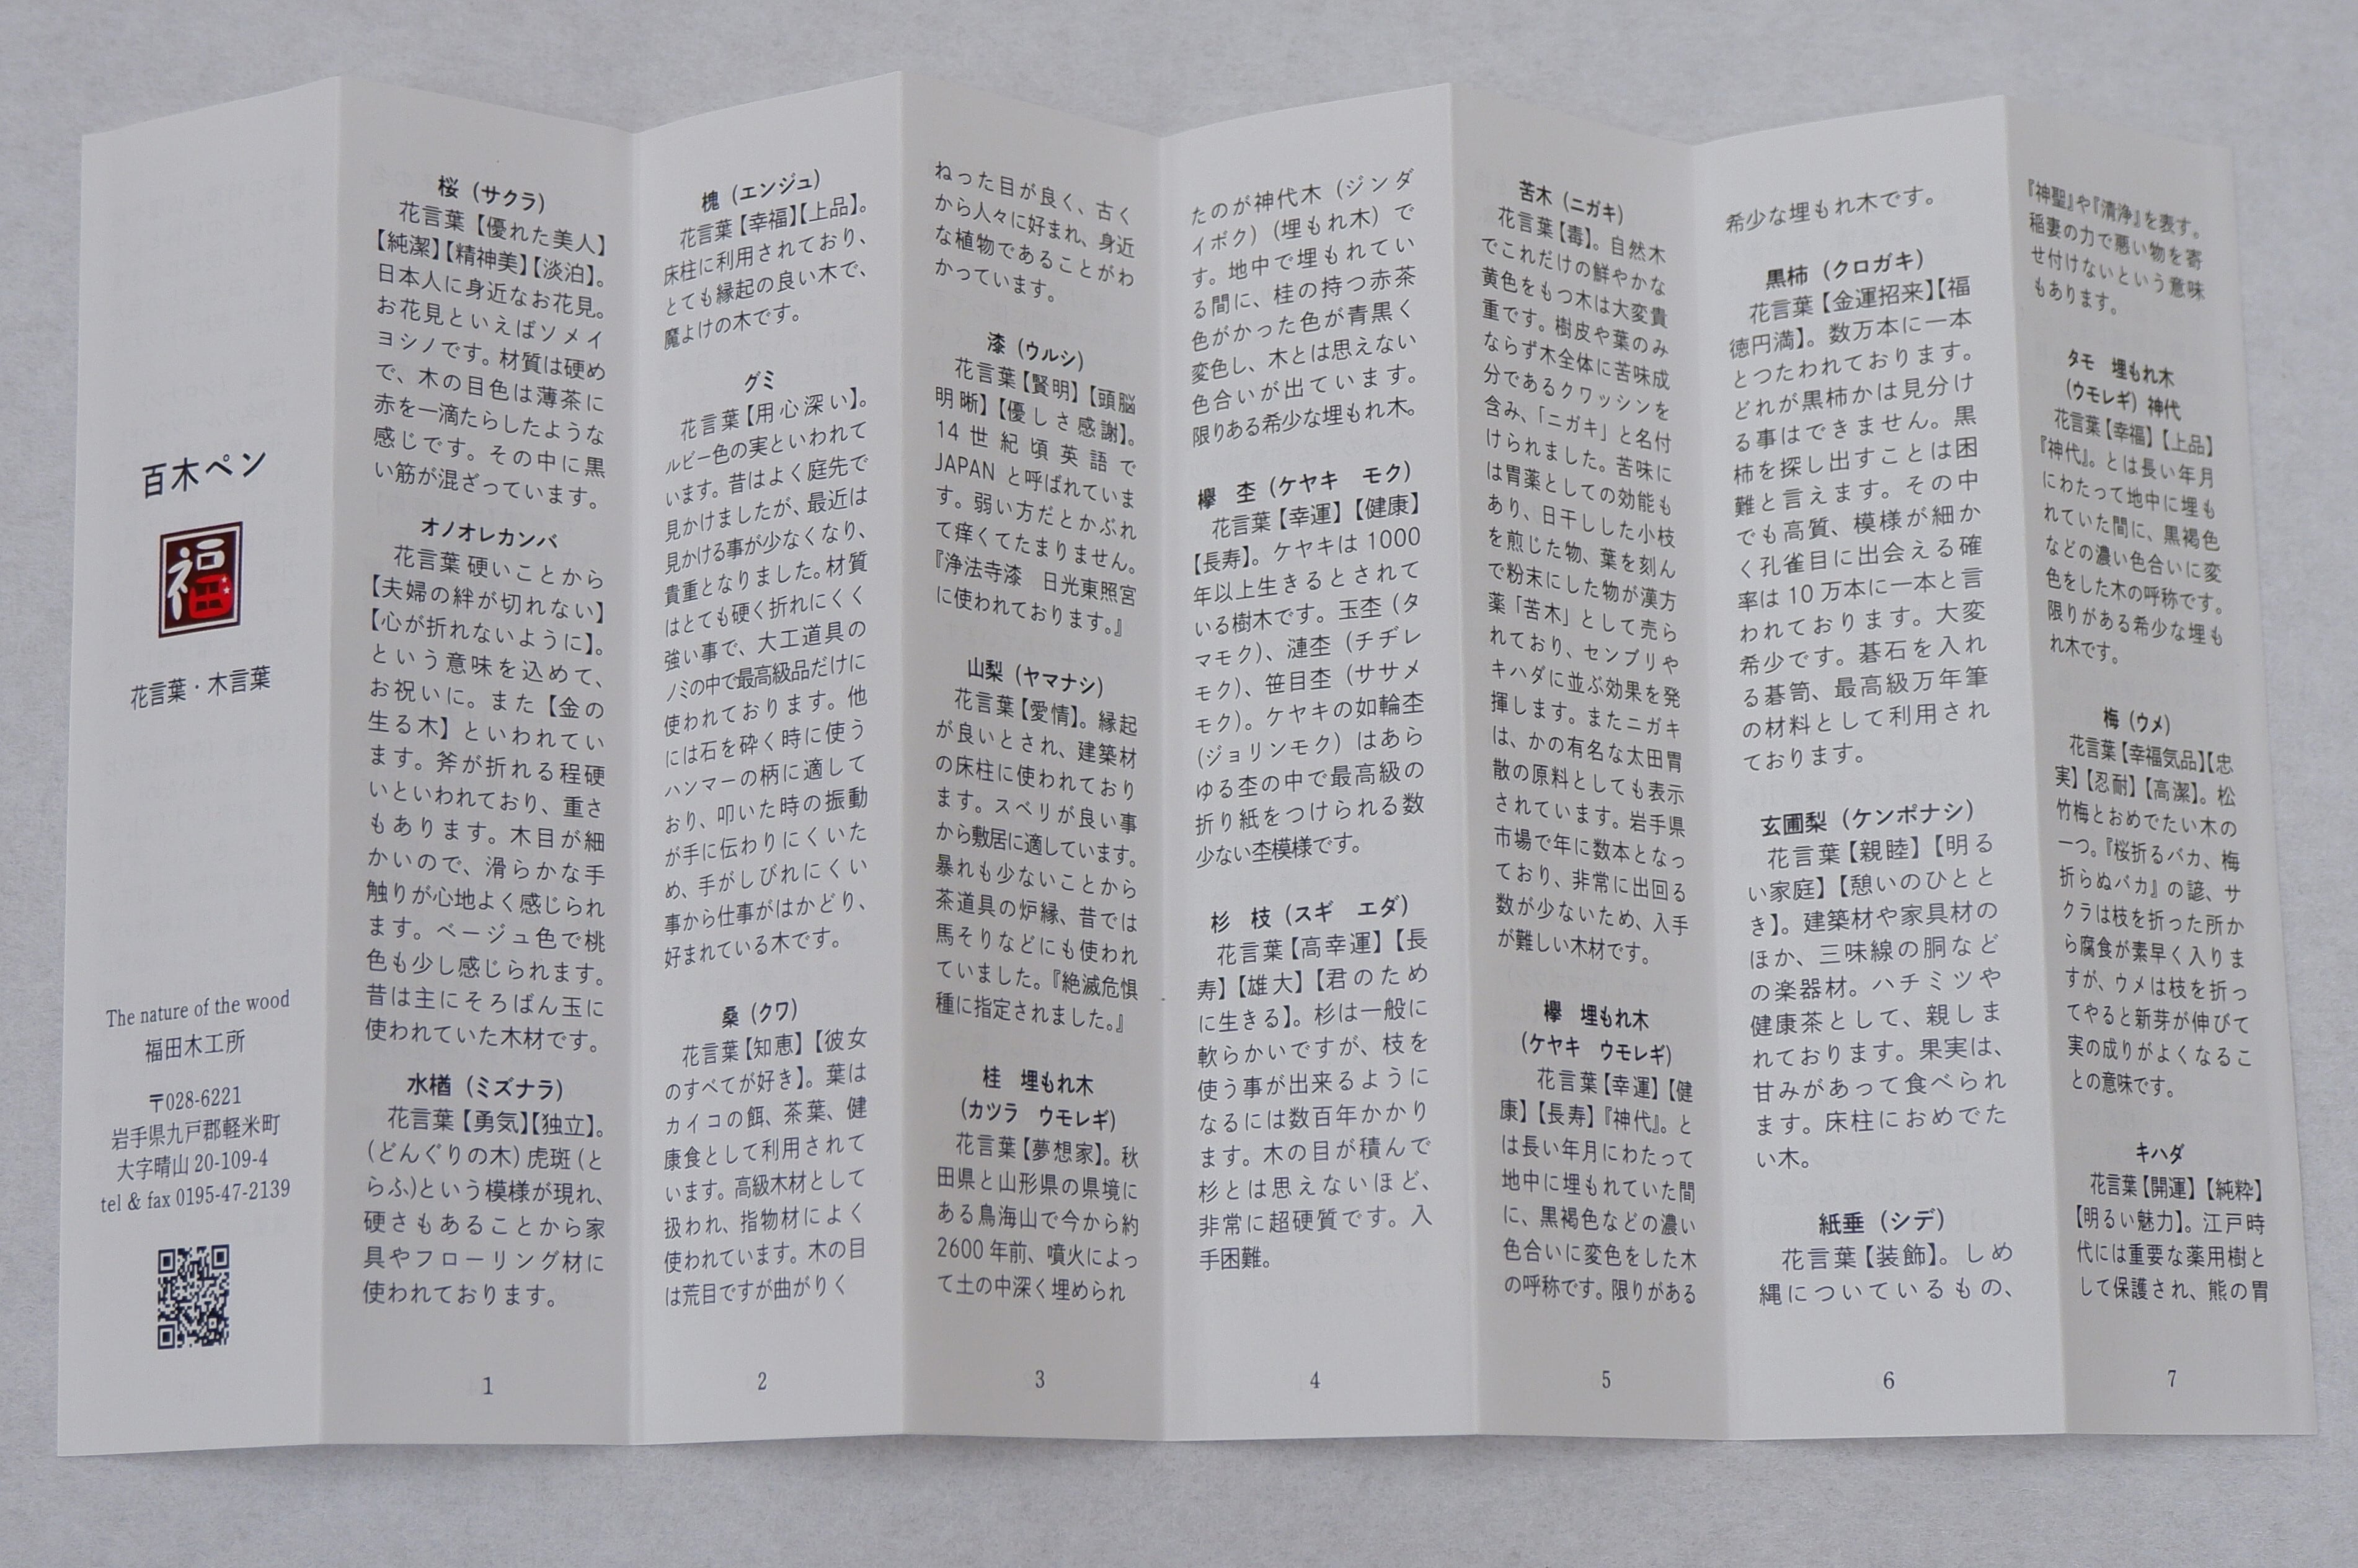 百木ペン
福
花言葉・木言葉
The nature of the wood
福田木工所
〒028-6221
岩手県九戸郡軽米町
大字晴山 20-109-4
tel & fax 0195-47-2139
桜（サクラ）
花言葉【優れた美人】
【純潔】【精神美】【淡泊】。
日本人に身近なお花見。
お花見といえばソメイ
ヨシノです。材質は硬め
で、木の目色は薄茶に
赤を一滴たらしたような
感じです。その中に黒
い筋が混ざっています。
オノオレカンバ
花言葉 硬いことから
【夫婦の絆が切れない】
【心が折れないように】。
という意味を込めて、
お祝いに。また【金の
生る木】といわれてい
ます。斧が折れる程硬
いといわれており、重さ
もあります。木目が細
かいので、滑らかな手
触りが心地よく感じられ
ます。ベージュ色で桃
色も少し感じられます。
昔は主にそろばん玉に
使われていた木材です。
水楢（ミズナラ）
花言葉【勇気】【独立】。
（どんぐりの木）虎斑（と
らふ）という模様が現れ、
硬さもあることから家
具やフローリング材に
使われております。
1
槐（エンジュ）
花言葉【幸福】【上品】。
床柱に利用されており、
とても縁起の良い木で、
魔よけの木です。
グミ
花言葉【用心深い】。
ルビー色の実といわれて
います。昔はよく庭先で
見かけましたが、最近は
見かける事が少なくなり、
貴重となりました。材質
はとても硬く折れにくく
強い事で、大工道具の
ノミの中で最高級品だけに
使われております。他
には石を砕く時に使う
ハンマーの柄に適して
おり、叩いた時の振動
が手に伝わりにくいた
め、手がしびれにくい
事から仕事がはかどり、
好まれている木です。
桑（クワ）
花言葉【知恵】【彼女
のすべてが好き】。葉は
カイコの餌、茶葉、健
康食として利用されて
います。高級木材として
扱われ、指物材によく
使われています。木の目
は荒目ですが曲がりく
2
ねった目が良く、古く
から人々に好まれ、身近
な植物であることがわ
かっています。
漆（ウルシ）
花言葉【賢明】【頭脳
明晰】【優しさ感謝】。
14世紀頃英語で
JAPAN と呼ばれていま
す。弱い方だとかぶれ
て痒くてたまりません。
『浄法寺漆　日光東照宮
に使われております。』
山梨（ヤマナシ）
花言葉【愛情】。縁起
が良いとされ、建築材
の床柱に使われており
ます。スベリが良い事
から敷居に適しています。
暴れも少ないことから
茶道具の炉縁、昔では
馬そりなどにも使われ
ていました。『絶滅危惧
種に指定されました。』
桂　埋もれ木
（カツラ　ウモレギ）
花言葉【夢想家】。秋
田県と山形県の県境に
ある鳥海山で今から約
2600 年前、噴火によっ
て土の中深く埋められ
3
たのが神代木（ジンダ
イボク）（埋もれ木）で
す。地中で埋もれてい
る間に、桂の持つ赤茶
色がかった色が青黒く
変色し、木とは思えない
色合いが出ています。
限りある希少な埋もれ木。
欅　杢（ケヤキ　モク）
花言葉【幸運】【健康】
【長寿】。ケヤキは 1000
年以上生きるとされて
いる樹木です。玉杢（タ
マモク）、漣杢（チヂレ
モク）、笹目杢（ササメ
モク）。ケヤキの如輪杢
（ジョリンモク）はあら
ゆる杢の中で最高級の
折り紙をつけられる数
少ない杢模様です。
杉　枝（スギ　エダ）
花言葉【高幸運】【長
寿】【雄大】【君のため
に生きる】。杉は一般に
軟らかいですが、枝を
使う事が出来るように
なるには数百年かかり
ます。木の目が積んで
杉とは思えないほど、
非常に超硬質です。入
手困難。
4
苦木（ニガキ）
花言葉【毒】。自然木
でこれだけの鮮やかな
黄色をもつ木は大変貴
重です。樹皮や葉のみ
ならず木全体に苦味成
分であるクワッシンを
含み、「ニガキ」と名付
けられました。苦味に
は胃薬としての効能も
あり、日干しした小枝
を煎じた物、葉を刻ん
で粉末にした物が漢方
薬「苦木」として売ら
れており、センブリや
キハダに並ぶ効果を発
揮します。またニガキ
は、かの有名な太田胃
散の原料としても表示
されています。岩手県
市場で年に数本となっ
ており、非常に出回る
数が少ないため、入手
が難しい木材です。
欅　埋もれ木
（ケヤキ　ウモレギ）
花言葉【幸運】【健
康】【長寿】『神代』。と
は長い年月にわたって
地中に埋もれていた間
に、黒褐色などの濃い
色合いに変色をした木
の呼称です。限りがある
5
希少な埋もれ木です。
黒柿（クロガキ）
花言葉【金運招来】【福
徳円満】。数万本に一本
とつたわれております。
どれが黒柿かは見分け
る事はできません。黒
柿を探し出すことは困
難と言えます。その中
でも高質、模様が細か
く孔雀目に出会える確
率は 10 万本に一本と言
われております。大変
希少です。碁石を入れ
る碁笥、最高級万年筆
の材料として利用され
ております。
玄圃梨（ケンポナシ）
花言葉【親睦】【明る
い家庭】【憩いのひとと
き】。建築材や家具材の
ほか、三味線の胴など
の楽器材。ハチミツや
健康茶として、親しま
れております。果実は、
甘みがあって食べられ
ます。床柱におめでた
い木。
紙垂（シデ）
花言葉【装飾】。しめ
縄についているもの、
6
『神聖』や『清浄』を表す。
稲妻の力で悪い物を寄
せ付けないという意味
もあります。
タモ　埋もれ木
（ウモレギ）神代
花言葉【幸福】【上品】
『神代』。とは長い年月
にわたって地中に埋も
れていた間に、黒褐色
などの濃い色合いに変
色をした木の呼称です。
限りがある希少な埋も
れ木です。
梅（ウメ）
花言葉【幸福気品】【忠
実】【忍耐】【高潔】。松
竹梅とおめでたい木の
一つ。『桜折るバカ、梅
折らぬバカ』の諺、サ
クラは枝を折った所か
ら腐食が素早く入りま
すが、ウメは枝を折っ
てやると新芽が伸びて
実の成りがよくなるこ
との意味です。
キハダ
花言葉【開運】【純粋】
【明るい魅力】。江戸時
代には重要な薬用樹と
して保護され、熊の胃
7